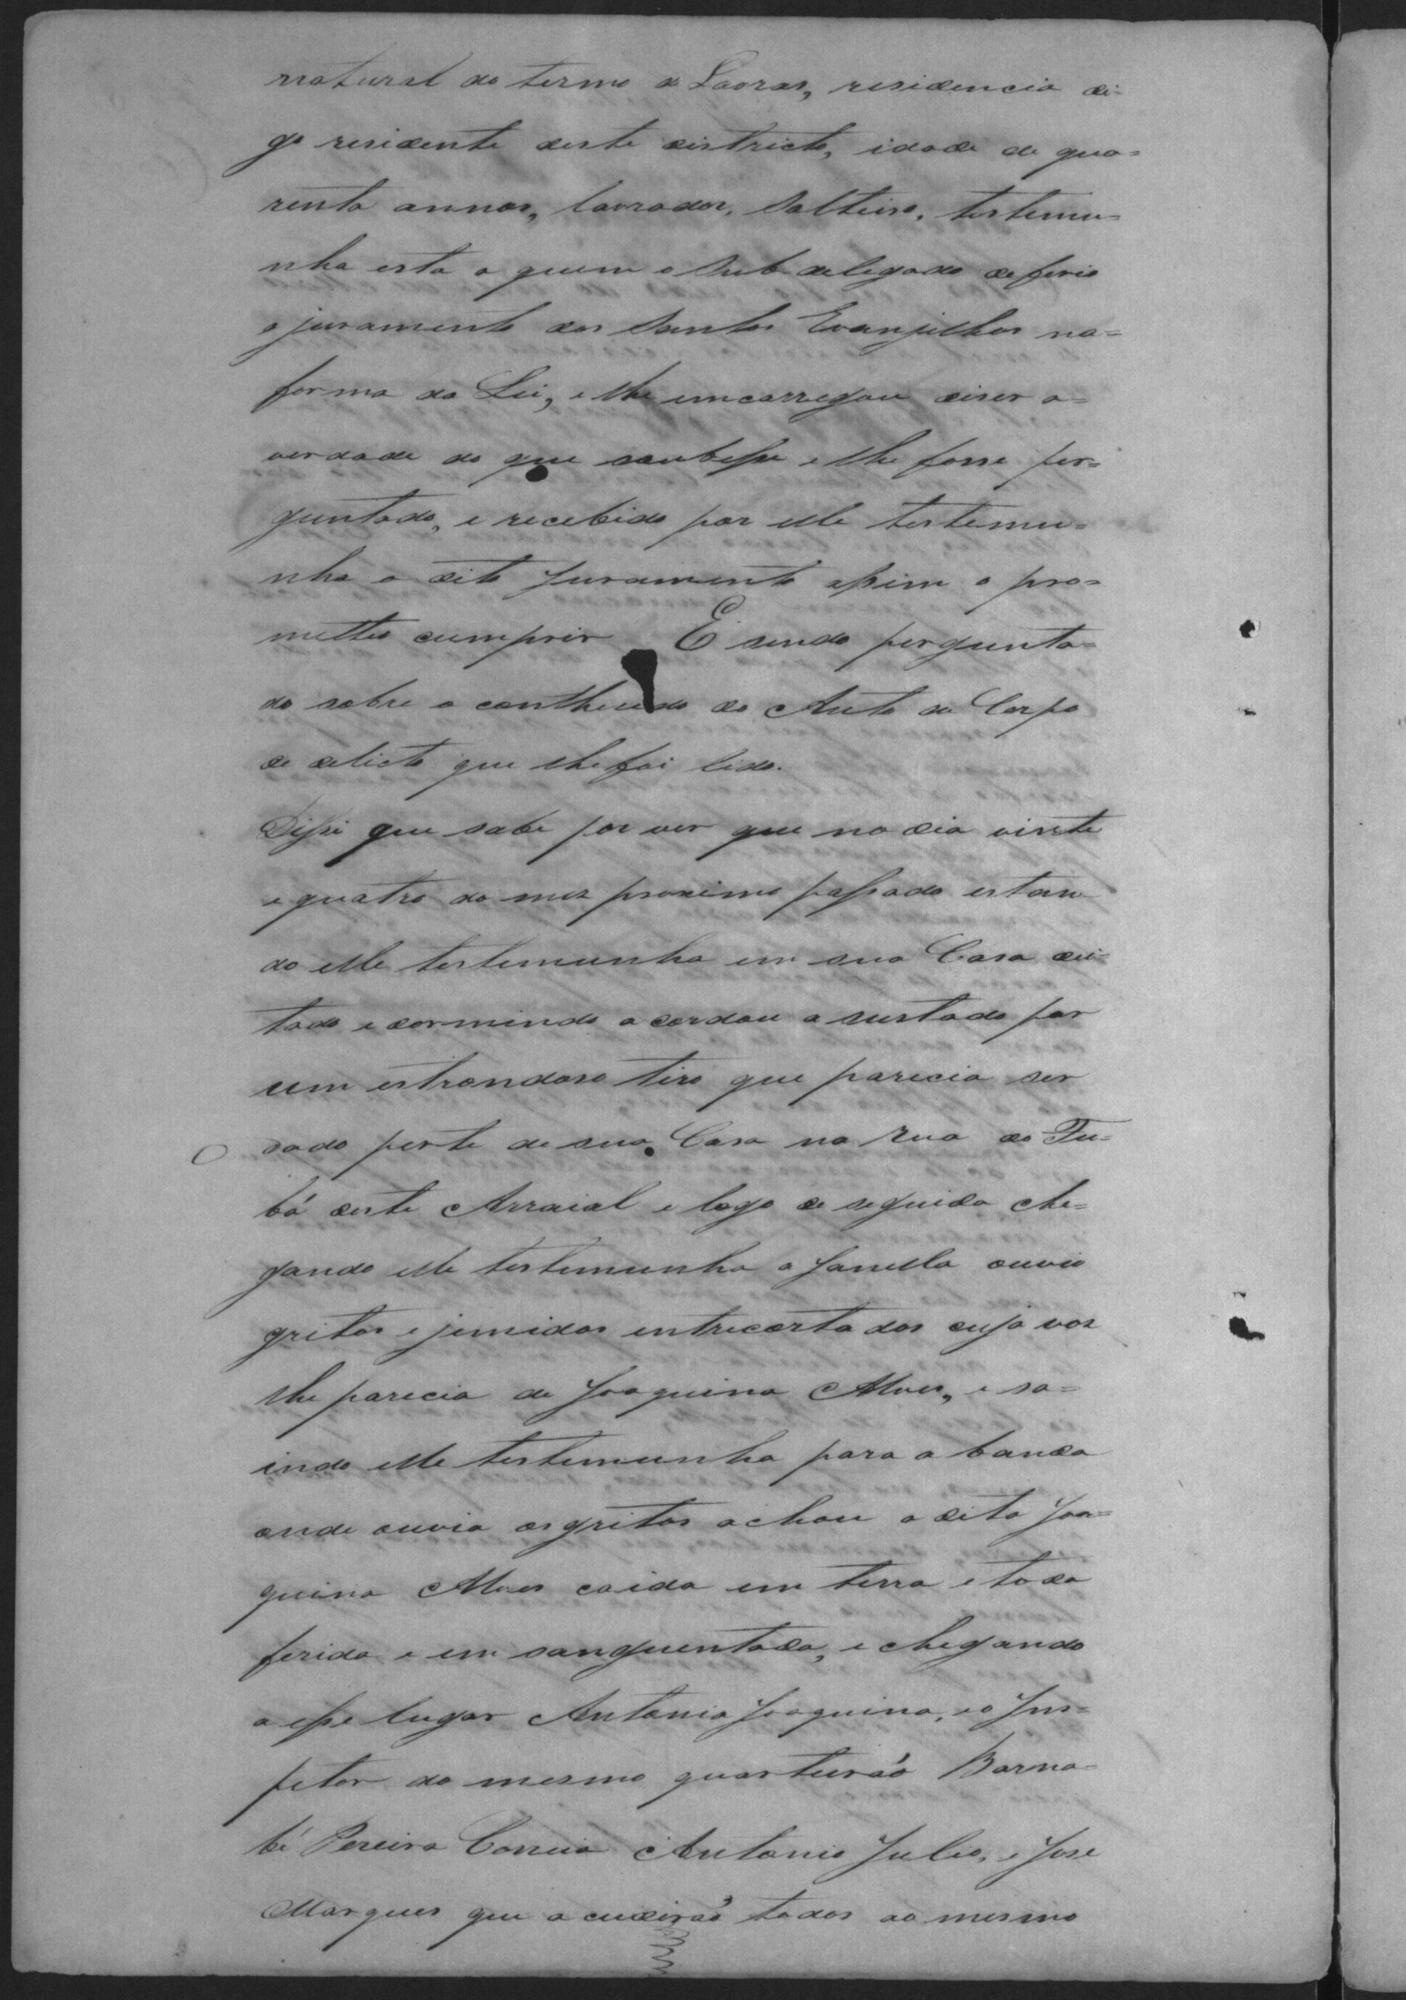 natural do termo de Lavras, residencia di-
go residente deste districto, idade de qua-
renta annos, lavrador, Solteiro, testemu-
nha esta a quem o Sub delegado deferio
o juramento dos Santos Evanjelhos na-
forma da Lei, e lhe emcarregou diser a-
verdade do que soubesse e lhe fosse per-
guntado, e recebido por elle testemu-
nha o dito Juramento assim o pro-
metteo cumprir E sendo pergunta-
do sobre o contheudo do Auto de Corpo
de delicto que lhe foi lido.
Disse que sabe por ver que no dia vinte
e quatro do mez proximo passado estan
do elle testemunha em sua Casa dei-
tado e dormindo acordou a sustado por
um estrondoso tiro que parecia ser
dado perto de sua Casa na rua do Fu-
bá deste Arraial e logo de seguida che-
gando elle testemunha a Janella ouvio
gritos e jemidos entrecortados cuja vos
lhe parecia de Joaquina Alves, e sa-
indo elle testemunha para a banda
onde ouvia os gritos achou a dita Joa-
quina Alves caida em terra e toda
ferida e em sanguentada, e chegando
a esse lugar Antonia Joaquina, e o Jns-
petor do mesmo quarteirão Barna-
bé Pereira Correia Antonio Julio, e Jose
Marques que a cudirão todos ao mesmo